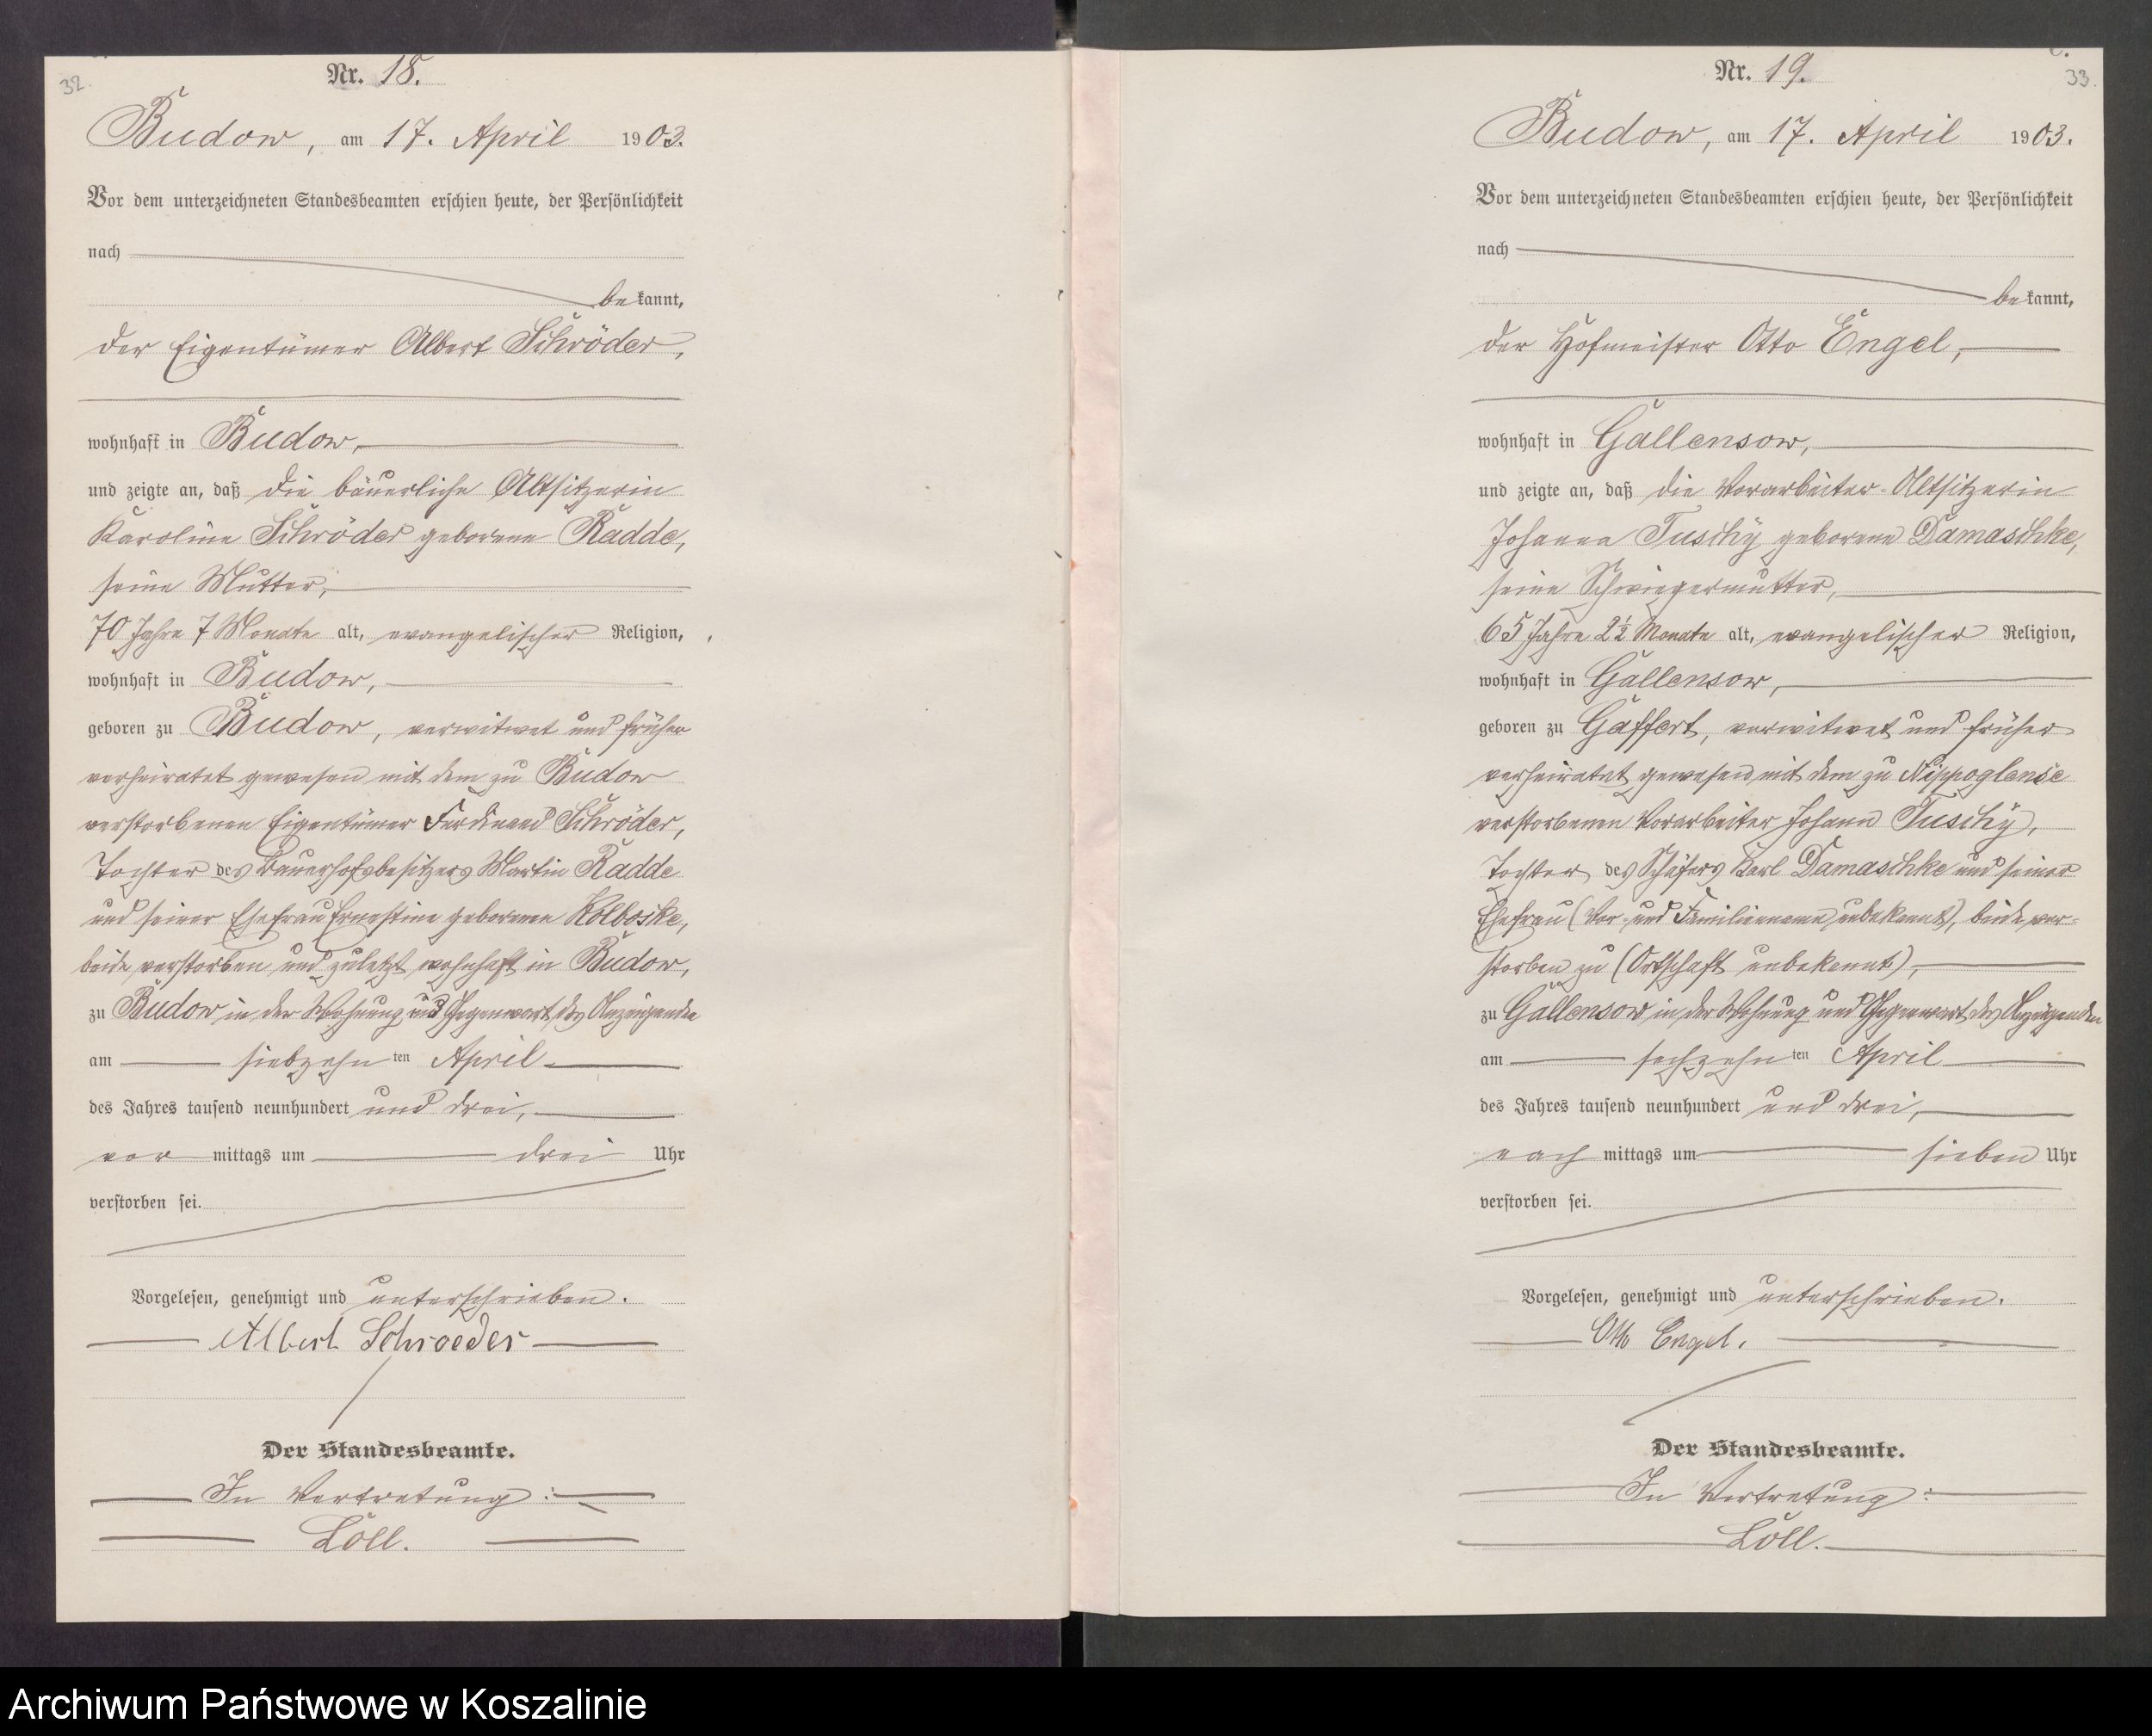 32.
Nr. 18.
Budow, am 17. April 1903.
Vor dem unterzeichneten Standesbeamten erschien heute, der Persönlichkeit
nach
bekannt,
der Eigentümer Albert Schröder,
wohnhaft in Budow,
und zeigte an, daß die bäuerliche Altsitzerin
Karoline Schröder geborene Radde,
seine Mutter,
70 Jahre 7 Monate alt, evangelischer Religion,
wohnhaft in Budow,
geboren zu Budow, verwitwet und früher
verheiratet gewesen mit dem zu Budow
verstorbenen Eigentümer Ferdinand Schröder,
Tochter des Bauerhofsbesitzers Martin Radde
und seiner Ehefrau Ernestine geborenen Kolboske,
beide verstorben und zuletzt wohnhaft in Budow,
zu Budow in der Wohnung und Gegenwart des Anzeigenden
am siebzehnten April
des Jahres tausend neunhundert und drei,
vormittags um drei Uhr
verstorben sei.
Vorgelesen, genehmigt und unterschrieben.
Albert Schroeder
Der Standesbeamte.
In Vertretung:
Löll.
33.
Nr. 19.
Budow, am 17. April 1903.
Vor dem unterzeichneten Standesbeamten erschien heute, der Persönlichkeit
nach
bekannt,
der Hofmeister Otto Engel,
wohnhaft in Gallensow,
und zeigte an, daß die Vorarbeiter-Altsitzerin
Johanna Tuschy geborene Damaschke,
seine Schwiegermutter,
65 Jahre 2½ Monate alt, evangelischer Religion,
wohnhaft in Gallensow,
geboren zu Gaffert, verwitwet und früher
verheiratet gewesen mit dem zu Nippoglense
verstorbenen Vorarbeiter Johann Tuschy,
Tochter des Schäfers Karl Damaschke und seiner
Ehefrau (Vor- und Familienname unbekannt), beide ver-
storben zu (Ortschaft unbekannt),
zu Gallensow in der Wohnung und Gegenwart des Anzeigenden
am sechzehnten April
des Jahres tausend neunhundert und drei,
nach mittags um sieben Uhr
verstorben sei.
Vorgelesen, genehmigt und unterschrieben.
Otto Engel.
Der Standesbeamte.
In Vertretung:
Löll.
Archiwum Państwowe w Koszalinie